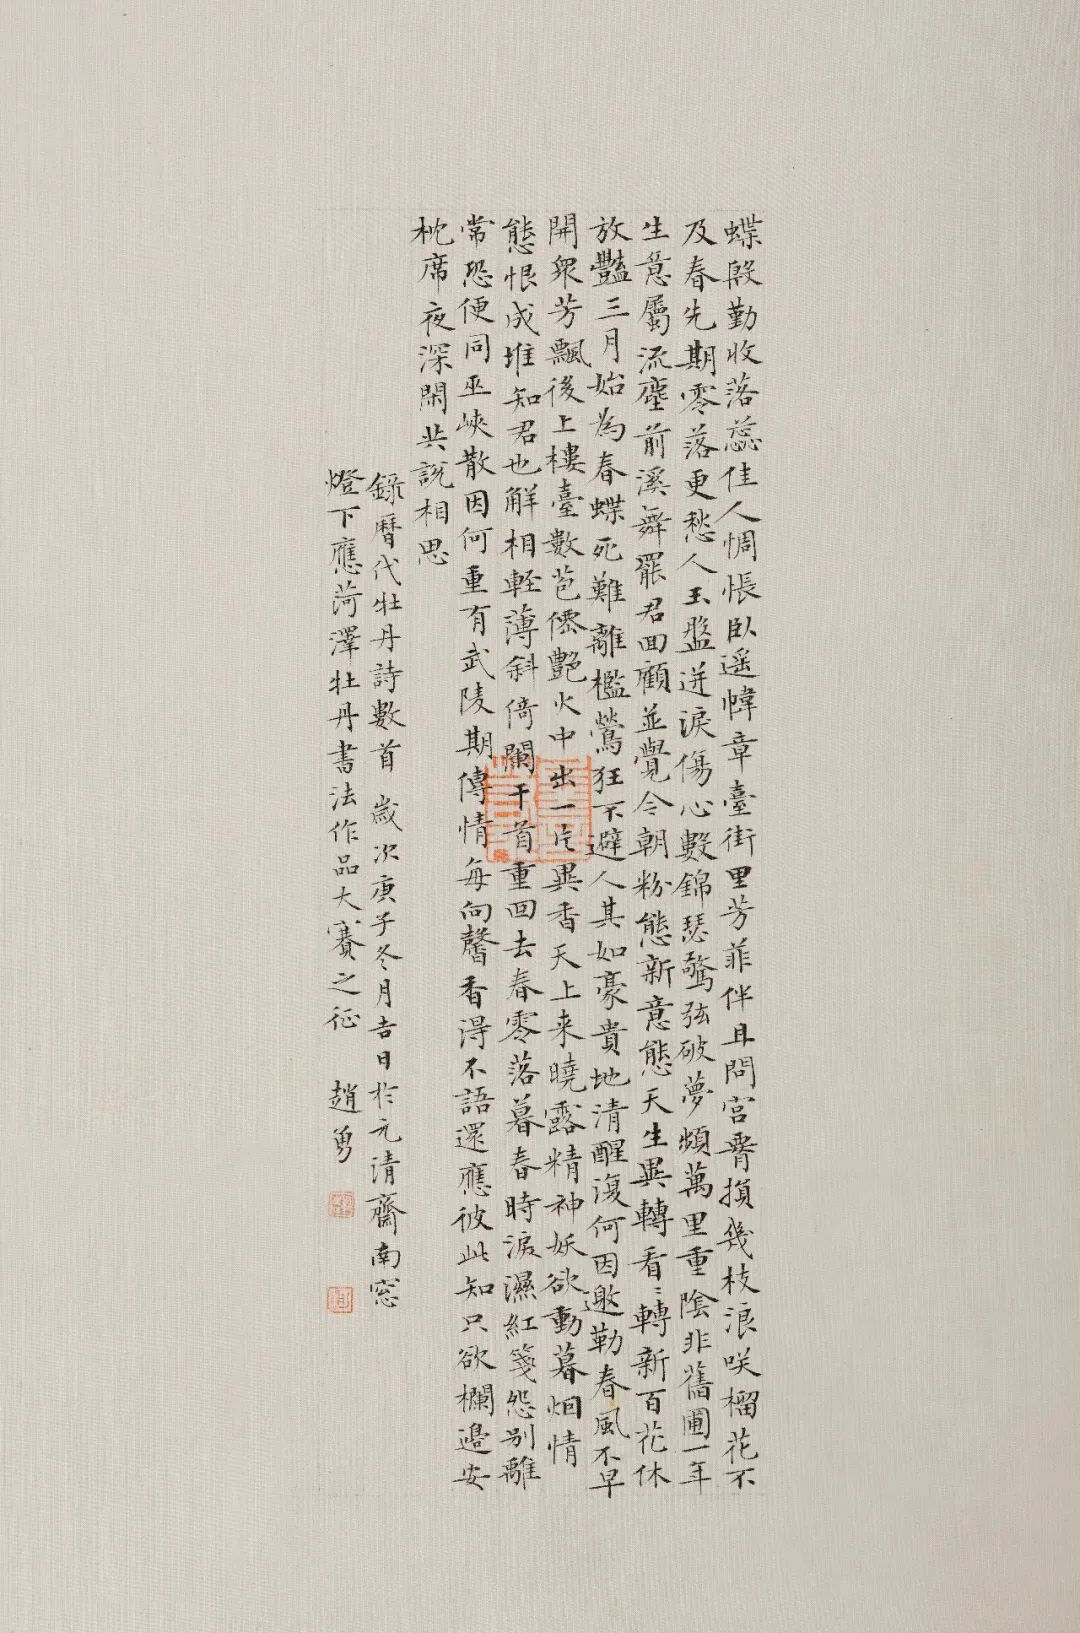 蝶殷勤收落蕊佳人惆悵臥遥幃章臺街里芳菲伴且問宫腰損幾枝浪咲榴花不
及春先期零落更愁人玉盤迸淚傷心數錦瑟驚弦破夢頻萬里重陰非舊圃一年
生意屬流塵前溪舞罷君回顧並覺今朝粉態新意態天生異轉看〻轉新百花休
放豔三月始為春蝶死難離檻鶯狂不避人其如豪貴地清醒復何因邀勒春風不早
開衆芳飄後上樓臺數苞僊艷火中出一片異香天上来曉露精神妖欲動暮烟情
態恨成堆知君也解相輕薄斜倚闌干首重回去春零落暮春時淚濕紅箋怨别離
常恐便同巫峽散因何重有武陵期傳情每向馨香得不語還應彼此知只欲欄邊安
枕席夜深閑共說相思
錄曆代牡丹詩數首 歲次庚子冬月吉日於元清齋南窓
燈下應菏澤牡丹書法作品大賽之征 趙勇